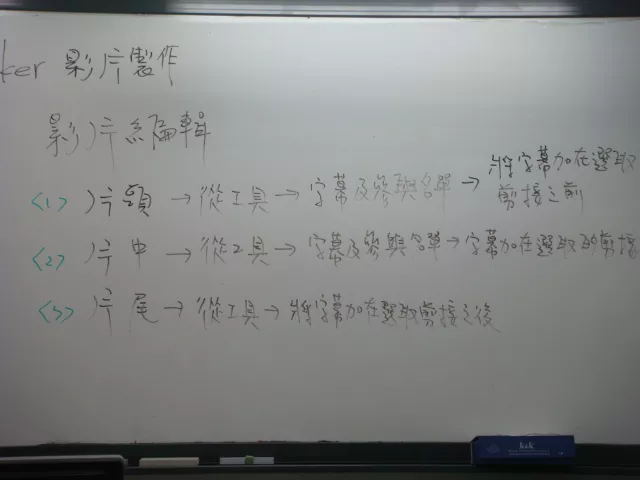 ker 影片製作
影片編輯
<1> 片頭 → 從工具 → 字幕及參與名單 → 將字幕加在選取剪接之前
<2> 片中 → 從工具 → 字幕及參與名單 → 字幕加在選取的剪接
<3> 片尾 → 從工具 → 將字幕加在選取剪接之後